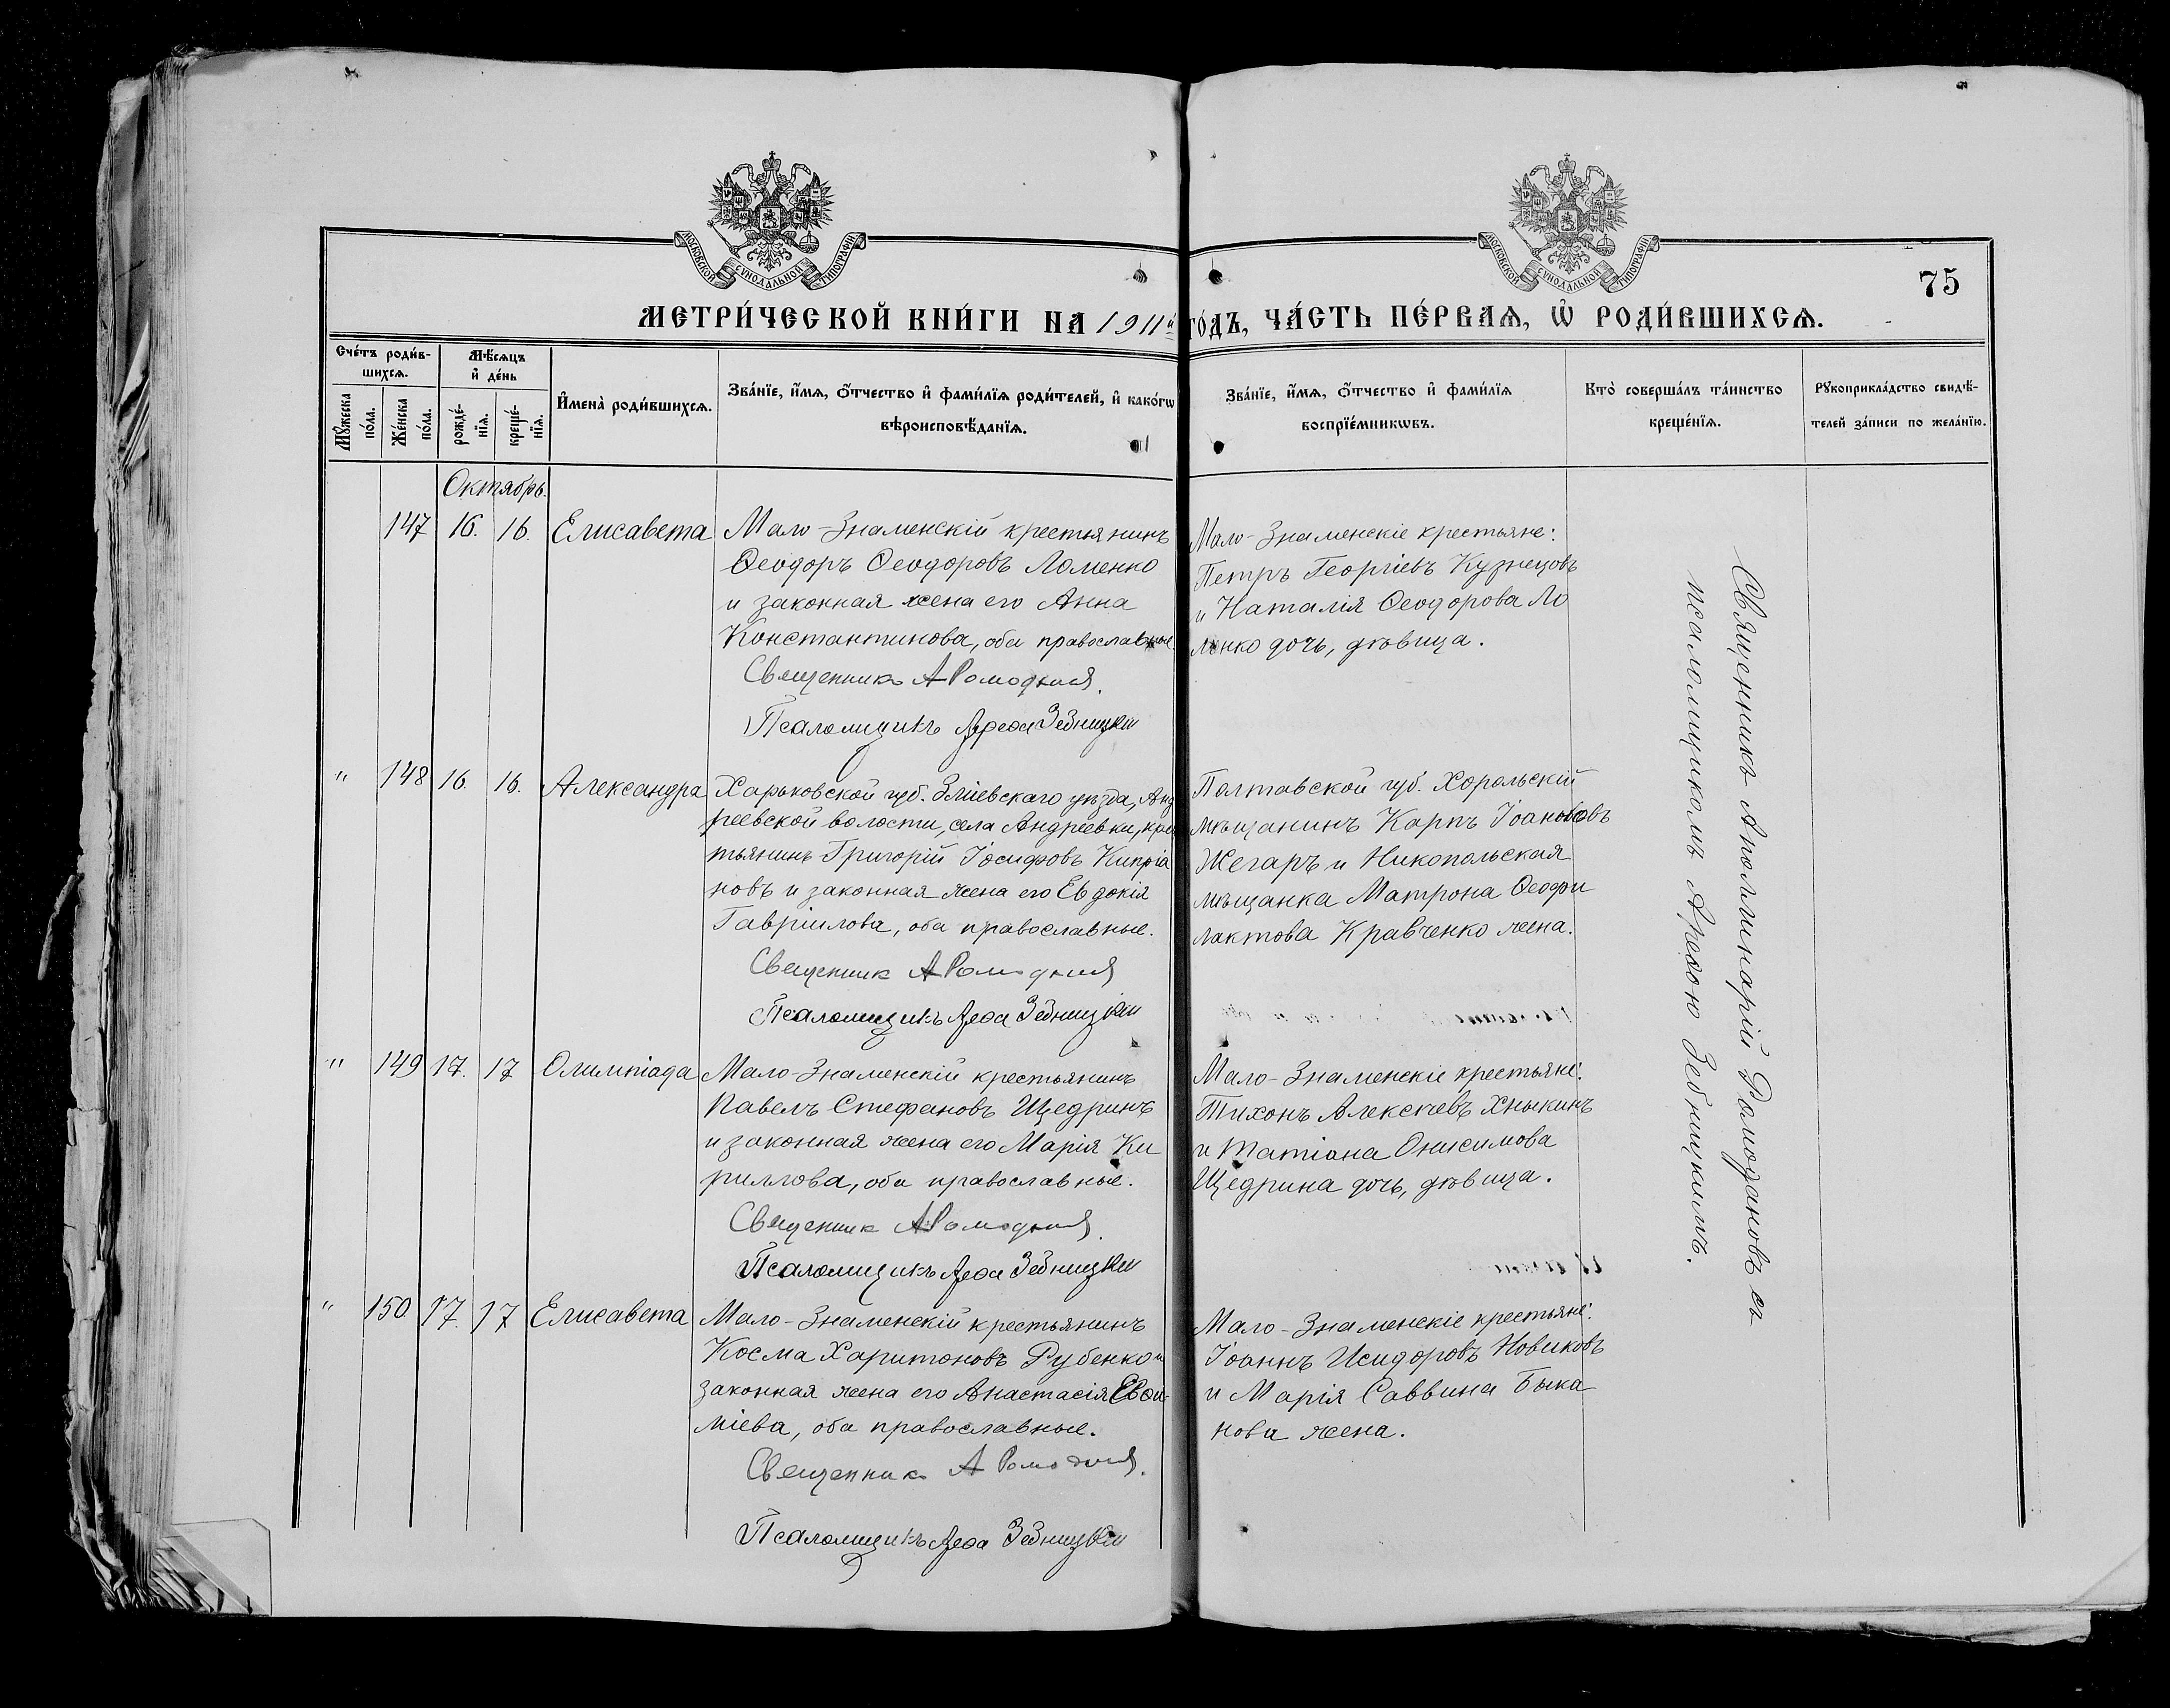 МОСКОВСКОЙ СѴНОДАЛЬНОЙ ТИПОГРАФІИ
МОСКОВСКОЙ СѴНОДАЛЬНОЙ ТИПОГРАФІИ
75
МЕТРИ́ЧЕСКОЙ КНИ́ГИ НА 1911й ГО́ДЪ, ЧА́СТЬ ПЕ́РВАѦ, Ѡ҆ РОДИ́ВШИХСѦ.
Сче́тъ роди́в-
шихсѧ.
Мꙋ́жеска
по́ла.
Же́нска
по́ла.
Мѣ́сѧцъ
и҆ де́нь
рожде́-
нїѧ.
креще́-
нїѧ.
И҆мена̀ роди́вшихсѧ.
Зва́нїе, и҆́мѧ, ѻ҆́тчество и҆ фами́лїѧ роди́телей, и҆ како́гѡ
вѣроисповѣ́данїѧ.
Зва́нїе, и҆́мѧ, ѻ҆́тчество и҆ фами́лїѧ
воспрїе́мникѡвъ.
Кто̀ соверша́лъ та́инство
креще́нїѧ.
Рꙋкоприкла́дство свидѣ́-
телей за́писи по жела́нїю.
Октябрь.
147 16. 16. Елисавета
Мало-Знаменскій крестьянинъ
Ѳеодоръ Ѳеодоровъ Ломенко
и законная жена его Анна
Константинова, оба православные.
Священникъ А Ромодановъ
Псаломщикъ Арефа Зебницкій
Мало-Знаменскіе крестьяне:
Петръ Георгіевъ Кузнецовъ
и Наталія Ѳеодорова Ло
менко дочь, дѣвица.
" 148 16. 16. Александра
Харьковской губ. Зміевскаго уѣзда, Анд
реевской волости, села Андреевки, крес
тьянинъ Григорій Іосифовъ Кипріа
новъ и законная жена его Евдокія
Гавріилова, оба православные.
Священникъ А Ромодановъ
Псаломщикъ Арефа Зебницкій
Полтавской губ. Хорольскій
мѣщанинъ Карпъ Іоанновъ
Жегаръ и Никопольская
мѣщанка Матрона Ѳеофи
лактова Кравченко жена.
" 149 17. 17 Олимпіада
Мало-Знаменскій крестьянинъ
Павелъ Стефановъ Щедринъ
и законная жена его Марія Ки
риллова, оба православные.
Священникъ А Ромодановъ
Псаломщикъ Арефа Зебницкій
Мало-Знаменскіе крестьяне:
Тихонъ Алексѣевъ Хныкинъ
и Татіана Онисимова
Щедрина дочь, дѣвица.
" 150 17. 17 Елисавета
Мало-Знаменскій крестьянинъ
Косма Харитоновъ Рубенко и
законная жена его Анастасія Евѳи-
міева, оба православные.
Священникъ А Ромодановъ
Псаломщикъ Арефа Зебницкій
Мало-Знаменскіе крестьяне:
Іоаннъ Исидоровъ Новиковъ
и Марія Саввина Быка
нова жена.
Священникъ Аполлинарій Ромодановъ съ
псаломщикомъ Арефою Зебницкимъ.